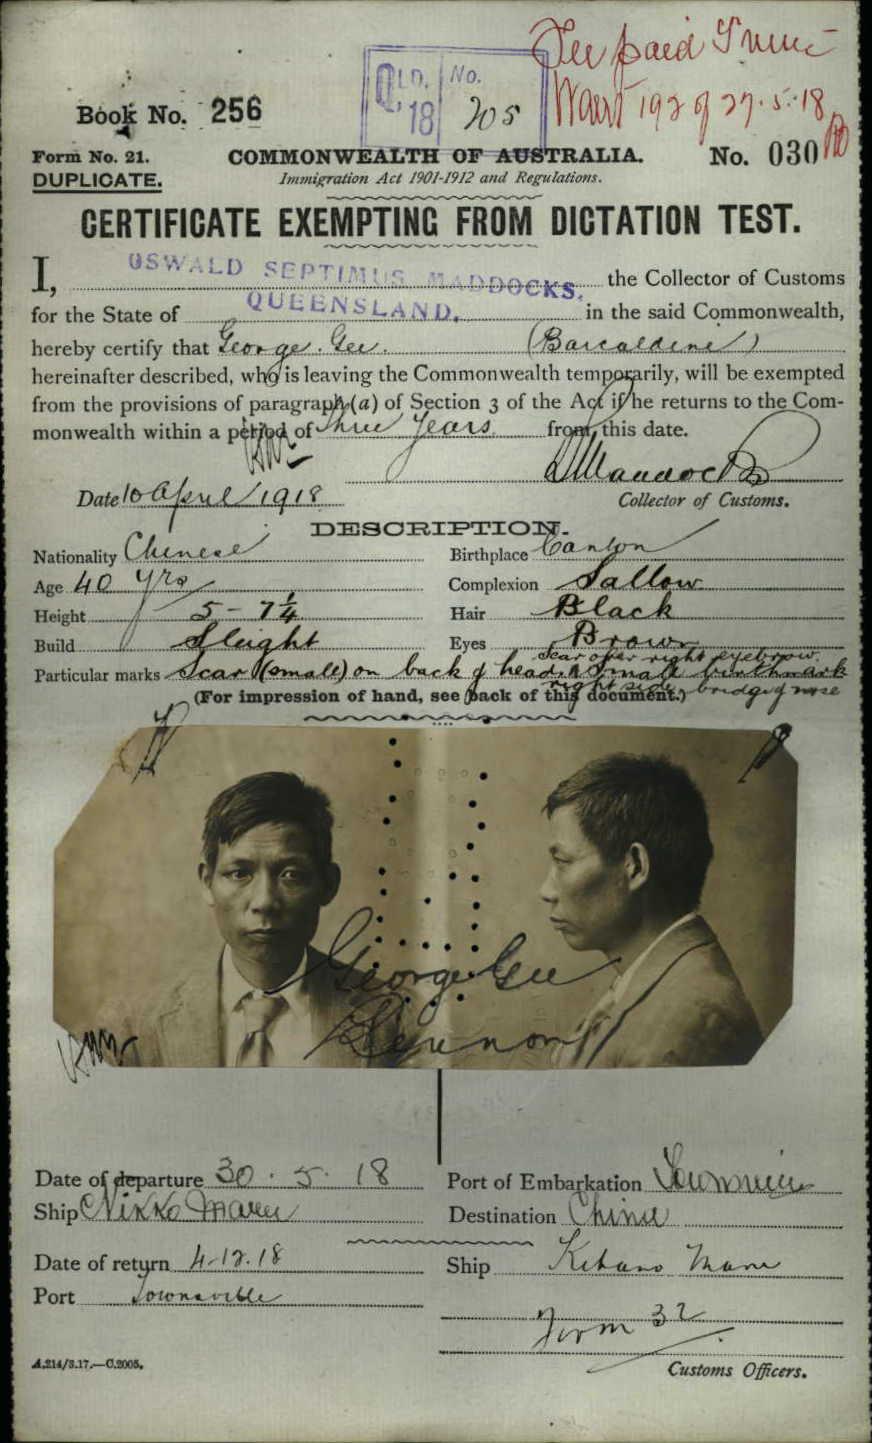 Fee paid T'ville
Warrt 192 of 27.5.18
QLD. No.
'18 205
Book No. 256
Form No. 21.
COMMONWEALTH OF AUSTRALIA.
No. 030
DUPLICATE.
Immigration Act 1901-1912 and Regulations.
CERTIFICATE EXEMPTING FROM DICTATION TEST.
I, OSWALD SEPTIMUS MADDOCKS, the Collector of Customs
for the State of QUEENSLAND. in the said Commonwealth,
hereby certify that George Gee. (Barcaldine)
hereinafter described, who is leaving the Commonwealth temporarily, will be exempted
from the provisions of paragraph (a) of Section 3 of the Act if he returns to the Com-
monwealth within a period of Three Years from this date.
Date 10 April 1918
Collector of Customs.
DESCRIPTION.
Nationality Chinese Birthplace Canton
Age 40 yrs Complexion Sallow
Height 5 - 7¼ Hair Black
Build Sleight Eyes Brown
scar over right eyebrow
Particular marks Scar (small) on back of head. Small birthmark
right side bridge of nose
(For impression of hand, see back of this document.)
George Gee
Date of departure 30.5.18 Port of Embarkation
Ship Nikko Maru Destination China
Date of return 4.12.18 Ship Kitano Maru
Port Townsville
Form 32
A.214/3.17.—C.2005.
Customs Officers.